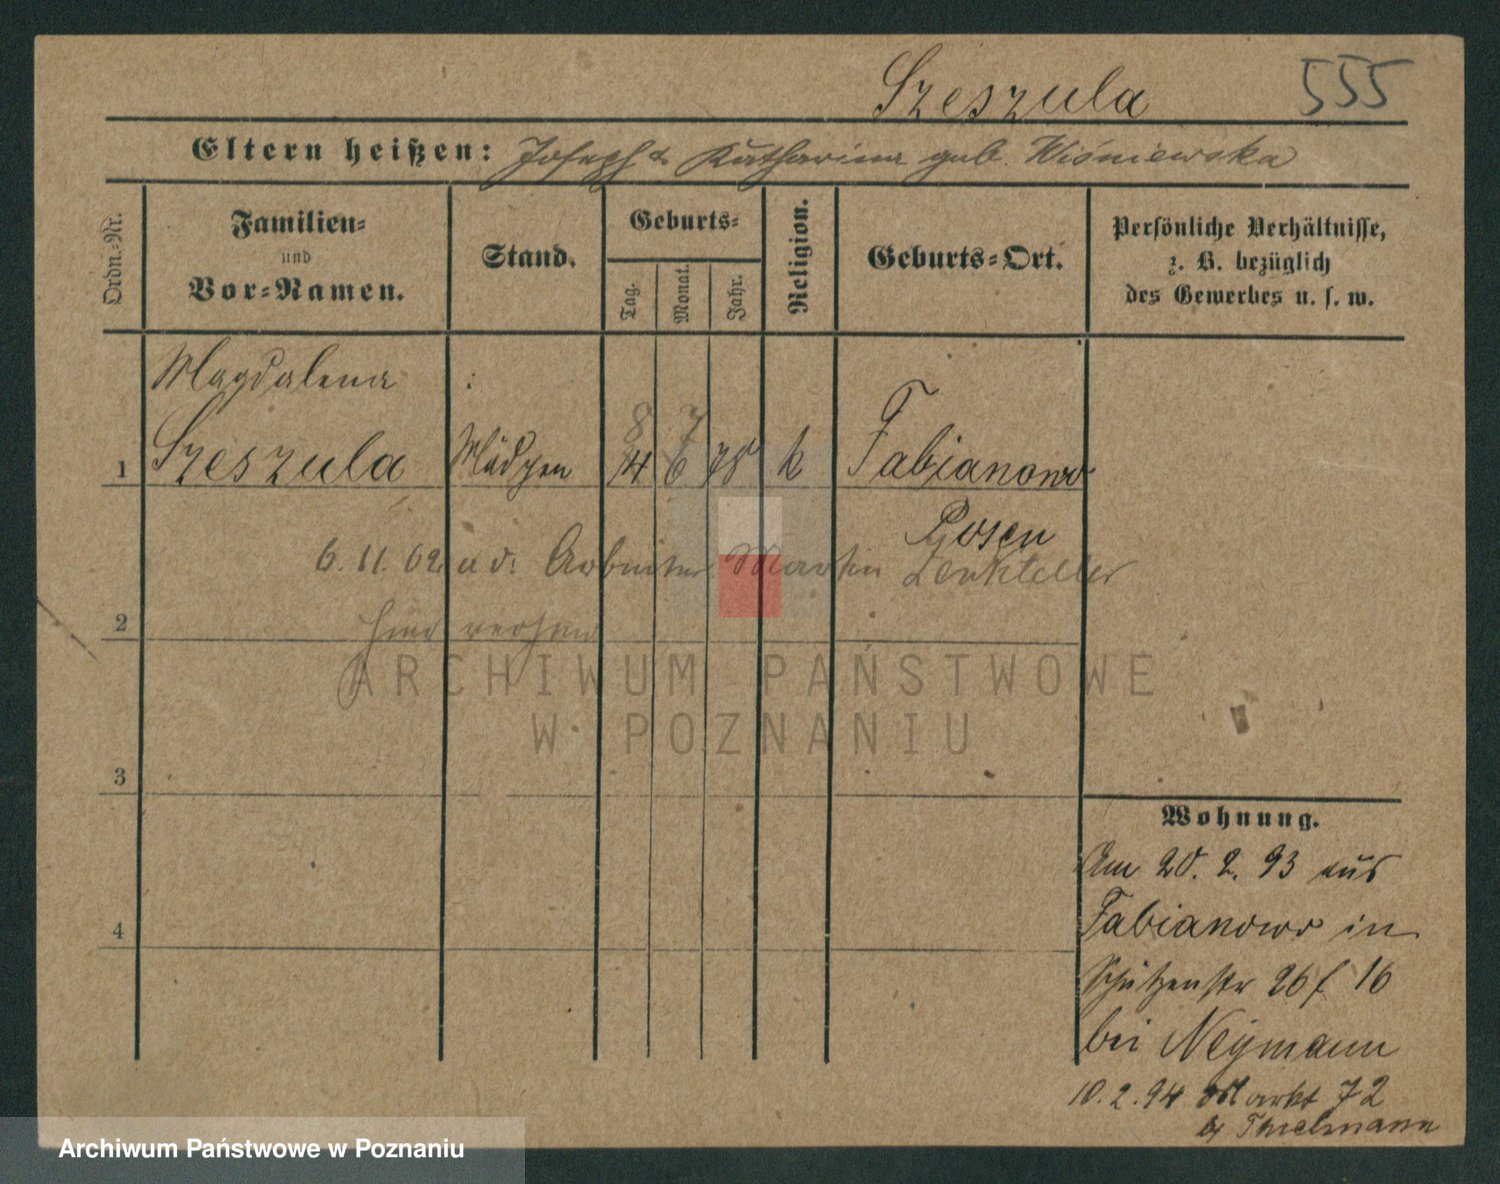 Szeszula 555
Eltern heißen: Joseph & Katharina geb. Wiśniewska
Ordn.-Nr.
Familien-
und
Vor-Namen.
Stand.
Geburts-
Tag.
Monat.
Jahr.
Religion.
Geburts-Ort.
Persönliche Verhältnisse,
z. B. bezüglich
des Gewerbes u. s. w.
Magdalena
8 7
1 Szeszula Mädchen 14 6 78 k Fabianowo
Posen
6. 11. 02 u d. Arbeiter Martin
hier
2
ARCHIWUM PAŃSTWOWE
W POZNANIU
3
4
Wohnung.
Am 20. 2. 93 aus
Fabianowo in
Schützenstr 26 f 16
bei Neymann
10. 2. 94 Markt 72
b/ Thielmann
Archiwum Państwowe w Poznaniu